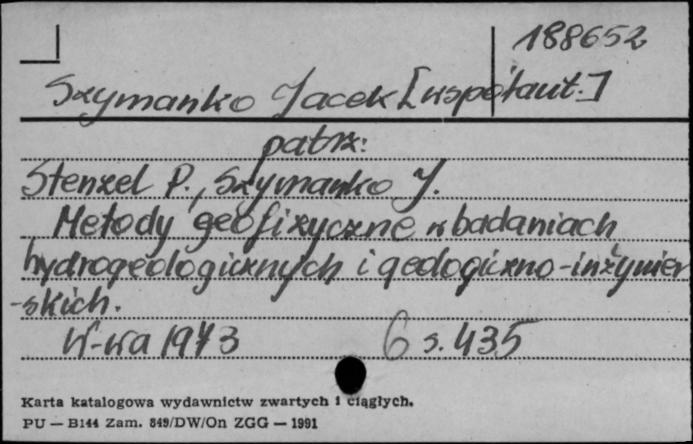 188652
Szymanko Jacek [współaut.]
patrz:
Stenzel P., Szymanko J.
Metody geofizyczne w badaniach
hydrogeologicznych i geologiczno-inżynier
-skich.
W-wa 1973 6 s. 435
Karta katalogowa wydawnictw zwartych i ciągłych.
PU — B144 Zam. 849/DW/On ZGG — 1991